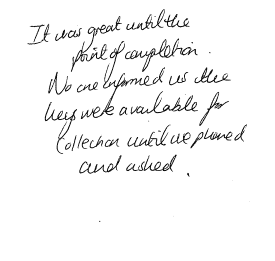 It was great until the
point of completion.
No one informed us the
keys were available for
collection until we phoned
and asked.